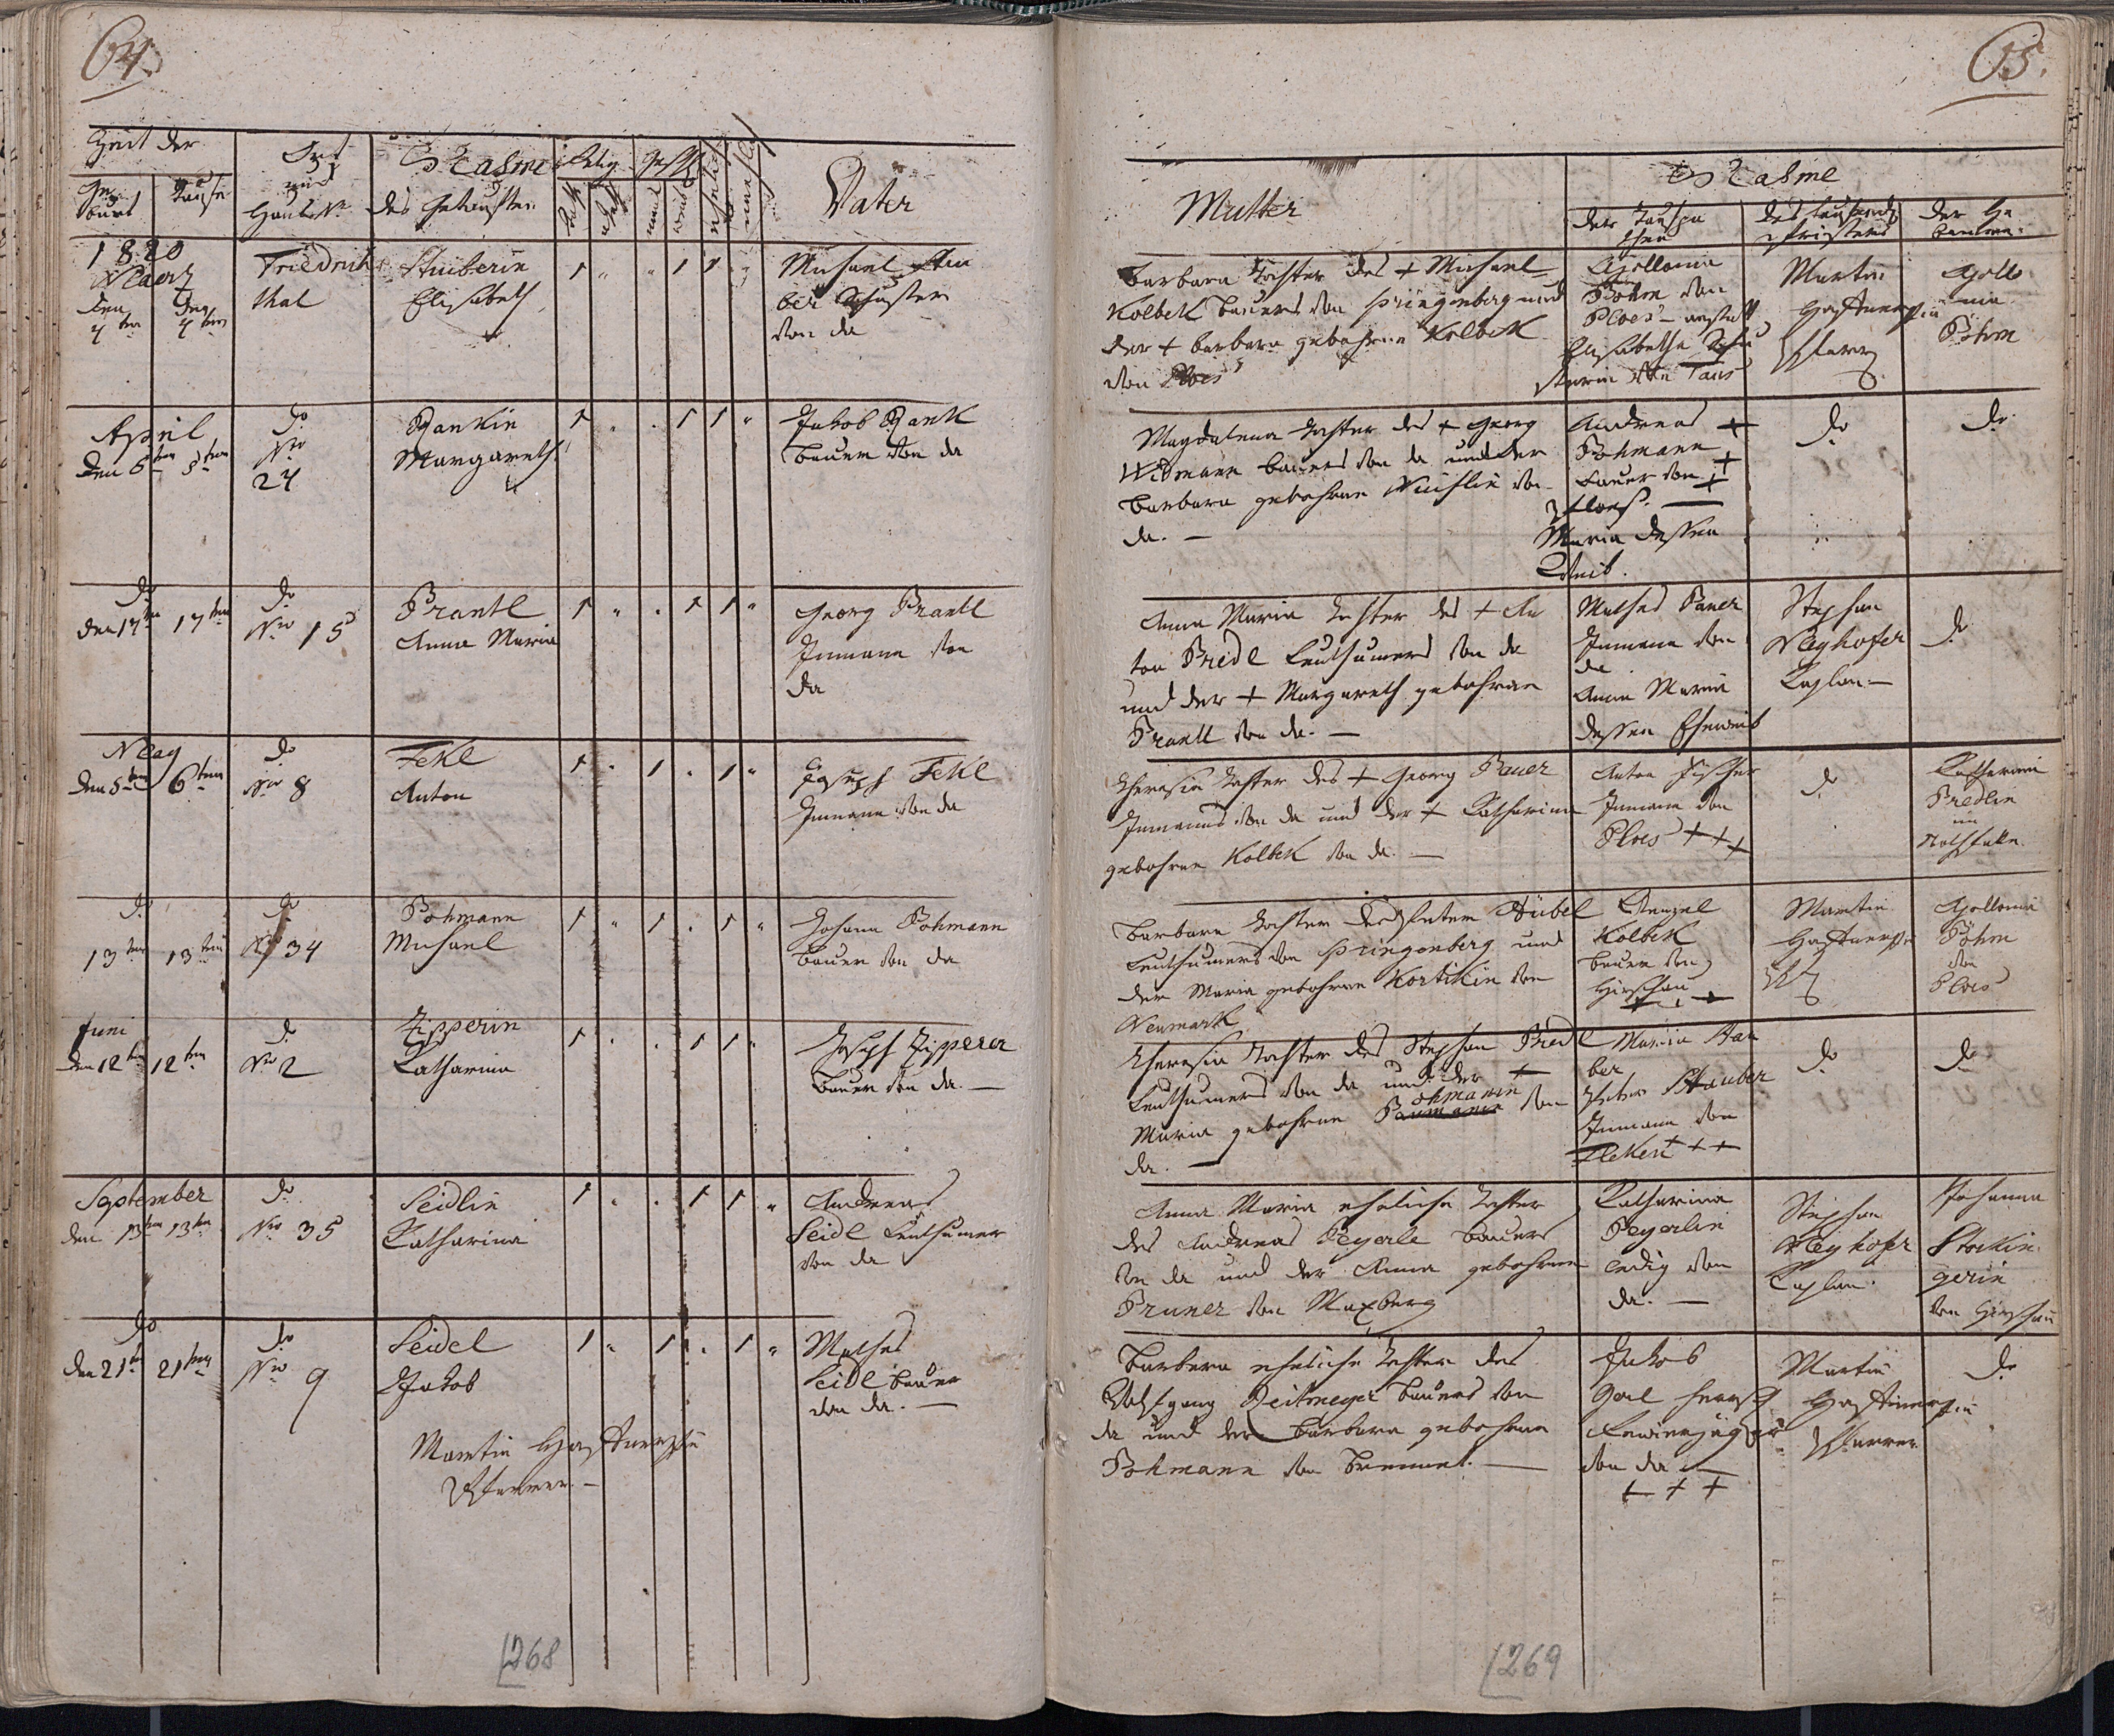 64.
Zeit der
Ge
burt
Taufe
Ort
und
Haus Nr
Nahme
des Getauften
Relig
Gesch
Vater
1820
Maerz
den
den
4ten
4ten
Friedrichs
thal
Stuiberin
Elisabeth
1 " " 1 1 "
Michael Stui
ber Schuster
von da
April
den 6ten 8ten
do
Nro
24
Rankin
Margareth
1 " . 1 1 "
Jakob Rank
Bauer von da
do
den 17ten 17ten
do
Nro 15
Prantl
Anna Maria
1 " . 1 1 "
Georg Prantl
Inmann von
da
May
den 5ten 6ten
do
Nro 8
Fekl
Anton
1 " 1 . 1 "
Joseph Fekl
Inmann von da
do
13ten 13ten
do
Nro 34
Pohmann
Michael
1 " 1 . 1 "
Johann Pohmann
Bauer von da
Juni
den 12ten 12ten
do
Nro 2
Zipperin
Katharina
1 . . 1 1 "
Joseph Zipperer
Bauer von da. —
September
den 13ten 13ten
do
Nro 35
Seidlin
Katharina
1 . . 1 1 "
Andreas
Seidl Leuthumer
von da
do
den 21ten 21ten
do
Nro 9
Seidel
Jakob
1 " 1 . 1 "
Mathes
Seidl Bauer
von da. —
Martin
Pfarrer. —
268
65.
Mutter
Nahme
der Taufpa
then
des taufenden
Priesters
der He
bamme.
Barbara Tochter des + Michael
Kolbek Bauers von Springenberg und
der + Barbara gebohrne Kolbek
von Ploes
Apollonia
Böhm von
Ploes — anstatt
Elisabetha
von Taus
Martin
Pfarrer
Apollo
nia
Böhm
Magdalena Tochter des + Georg
Widmann Bauers von da und der
Barbara gebohrne von
da. —
Andreas +
Pohmann +
Bauer von +
Ploes. —
Maria dessen
Weib.
do
do
Anna Maria Tochter des + An
ton Bredl Leuthumers von da
und der + Margareth gebohrne
Prantl von da. —
Mathes Bauer
Inmann von
da
Anna Maria
dessen Eheweib
Stephan
Mayhofer
Kaplan —
do
Theresia Tochter des + Georg Bauer
Inmanns von da und der + Katharina
gebohrne Kolbek von da. —
Anton Fischer
Inmann von
Ploes + + +
do
Katharina
Bredlin
im
Nothfalle.
Barbara Tochter des Peter Hübel
Leuthumers von Springenberg und
der Maria gebohrne Kortikin von
Neumark
Wenzel
Kolbek
Bauer von
Hirschau
+ + +
Martin
Pf
Apollonia
Böhm
von
Ploes
Theresia Tochter des Stephan Bredl
Leuthumers von da und der +
Maria gebohrne Pohmanin von
da. —
Peter Stauber
Inmann von
Fleken + + +
do
do
Anna Maria eheliche Tochter
des Andreas Peyerle Bauers
von da und der Anna gebohrne
Pruner von Maxberg
Katharina
Peyerlin
ledig von
da. —
Stephan
Mayhofer
Kaplan.
Johanna
Stockin
gerin
von Hirschau
Barbara eheliche Tochter des
Wolfgang Reitmeyer Bauers von
da und der Barbara gebohrne
Pohmann von Brennet. —
Jakob
Gorl
Revierjäger
von da —
+ + +
Martin
Pfarrer
do
269